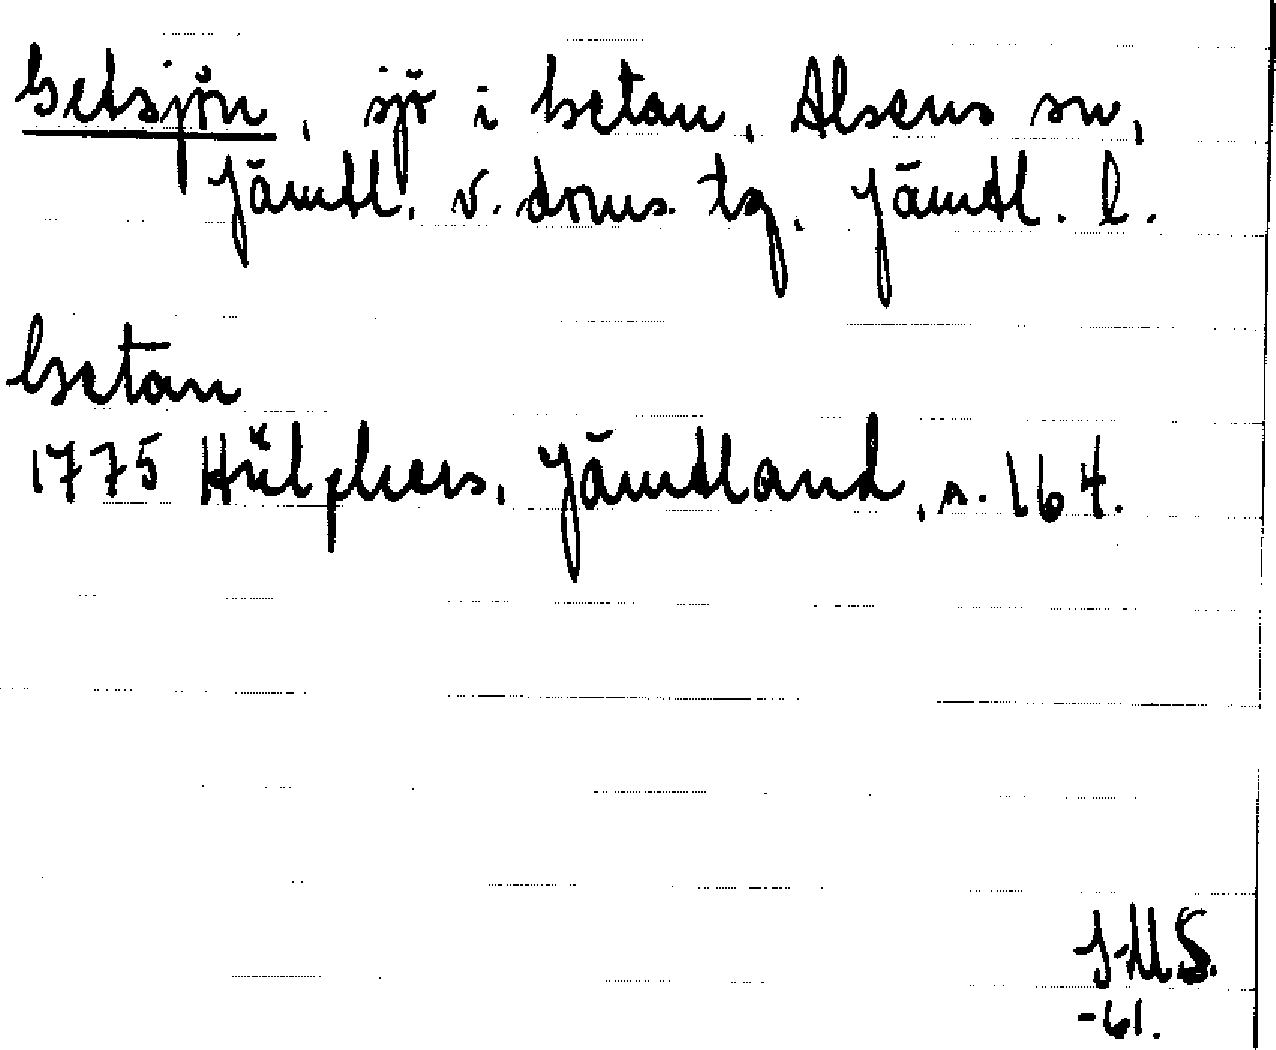 Getsjön, sjö i Getan, Alsens sn,
Jämtl. v. doms. tg, Jämtl. l.
Getan
1775 Hülphers, Jämtland, s. 164.
JMS.
-61.